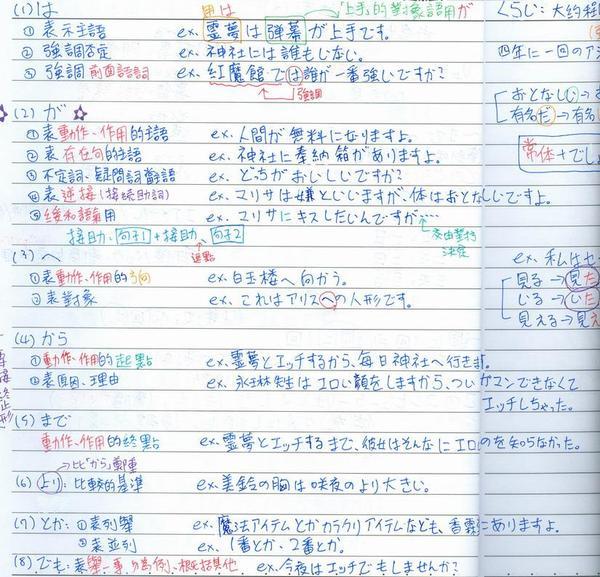 (1) は
用は
「上手」的對象語用が
① 表示主語 ex. 霊夢は弾幕が上手です。
② 強調否定 ex. 神社には誰もいない。
③ 強調前面語詞 ex. 紅魔館では誰が一番強いですか?
強調
(2) が
① 表動作、作用的主語 ex. 人間が無料になりますよ。
② 表有在句的主語 ex. 神社に奉納箱がありますよ。
③ 不定詞、疑問詞當主語 ex. どちがおいしいですか?
④ 表逆接(接続助詞) ex. マリサは嫌といいますが、体はおとなしいですよ。
⑤ 緩和語氣用 ex. マリサにキスしたいんですが…
接助、句子1+接助、句子2
逗點
決定
(3) へ
① 表動作、作用的方向 ex. 白玉楼へ向かう。
② 表對象 ex. これはアリスへの人形です。
(4) から
① 動作、作用的起點 ex. 霊夢とエッチするから、毎日神社へ行きます。
② 表原因、理由 ex. 永琳先生はエロい顔をしますから、ついガマンできなくて
エッチしちゃった。
(5) まで
動作、作用的終點 ex. 霊夢とエッチするまで、彼女はそんなにエロのを知らなかった。
比「から」鄭重
(6) より: 比較的基準 ex. 美鈴の胸は咲夜のより大きい。
(7) とか: ① 表列舉 ex. 魔法アイテムとかカラクリアイテムなども、香霖にありますよ。
② 表並列 ex. 1番とか、2番とか。
(8) でも: 表舉一事物為例、概括其他 ex. 今夜はエッチでもしませんか?
くらい: 大約程
四年に一回のア
おとなしい→お
有名だ→有名
常体+でし
ex. 私はセ
見る→見た
いる→いた
見える→見え